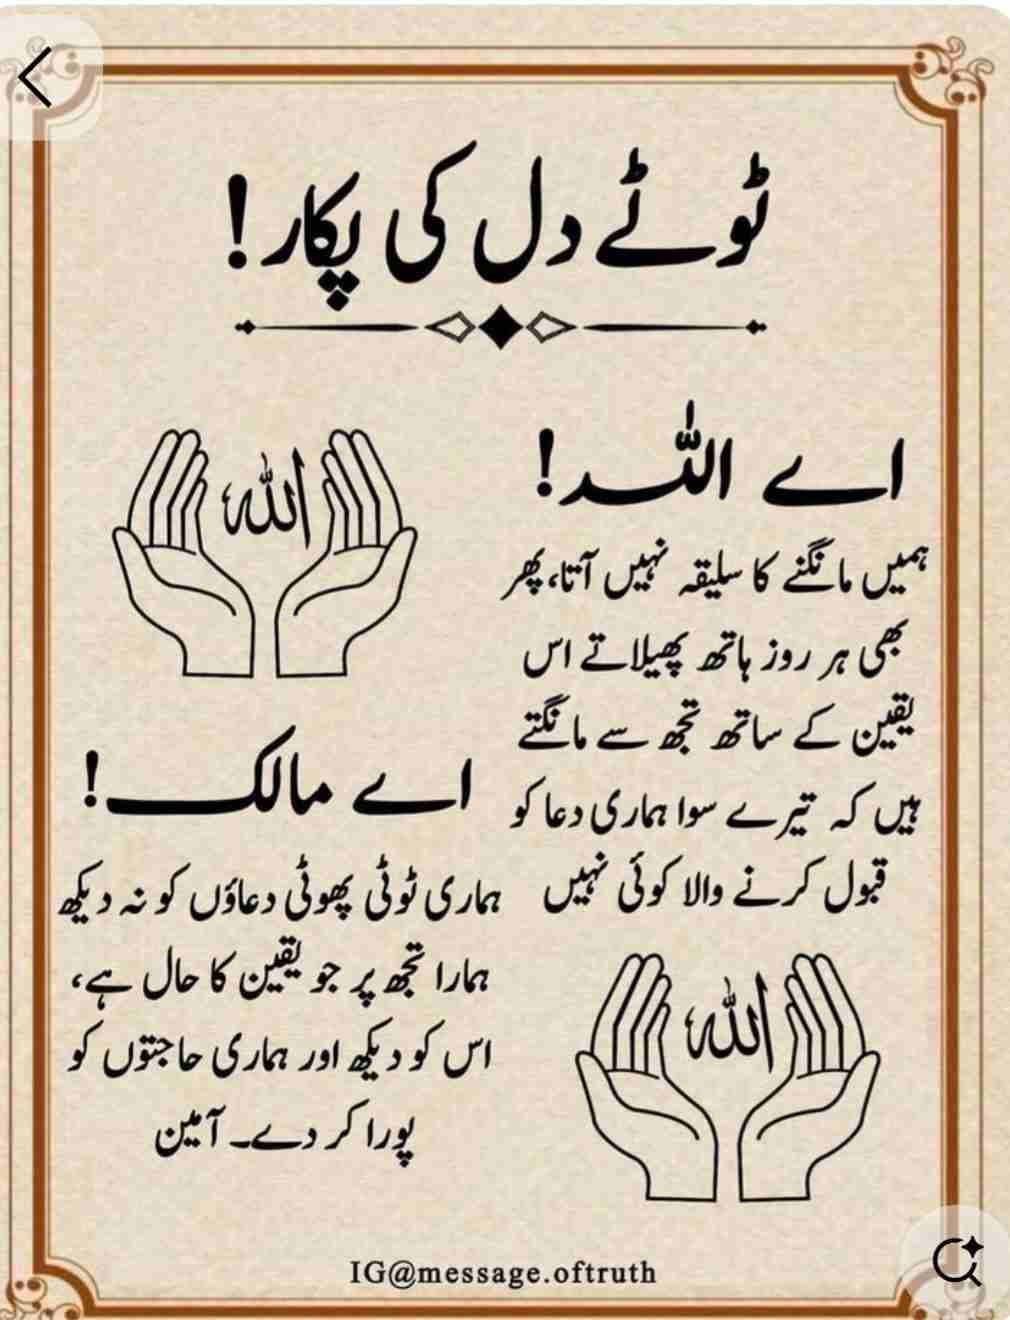 ٹوٹے دل کی پکار!
اے اللہ!
ہمیں مانگنے کا سلیقہ نہیں آتا، پھر
بھی ہر روز ہاتھ پھیلاتے اس
یقین کے ساتھ تجھ سے مانگتے
ہیں کہ تیرے سوا ہماری دعا کو
قبول کرنے والا کوئی نہیں
الله
اے مالک!
ہماری ٹوٹی پھوٹی دعاؤں کو نہ دیکھ
ہمارا تجھ پر جو یقین کا حال ہے،
اس کو دیکھ اور ہماری حاجتوں کو
پورا کر دے۔ آمین
الله
IG@message.oftruth